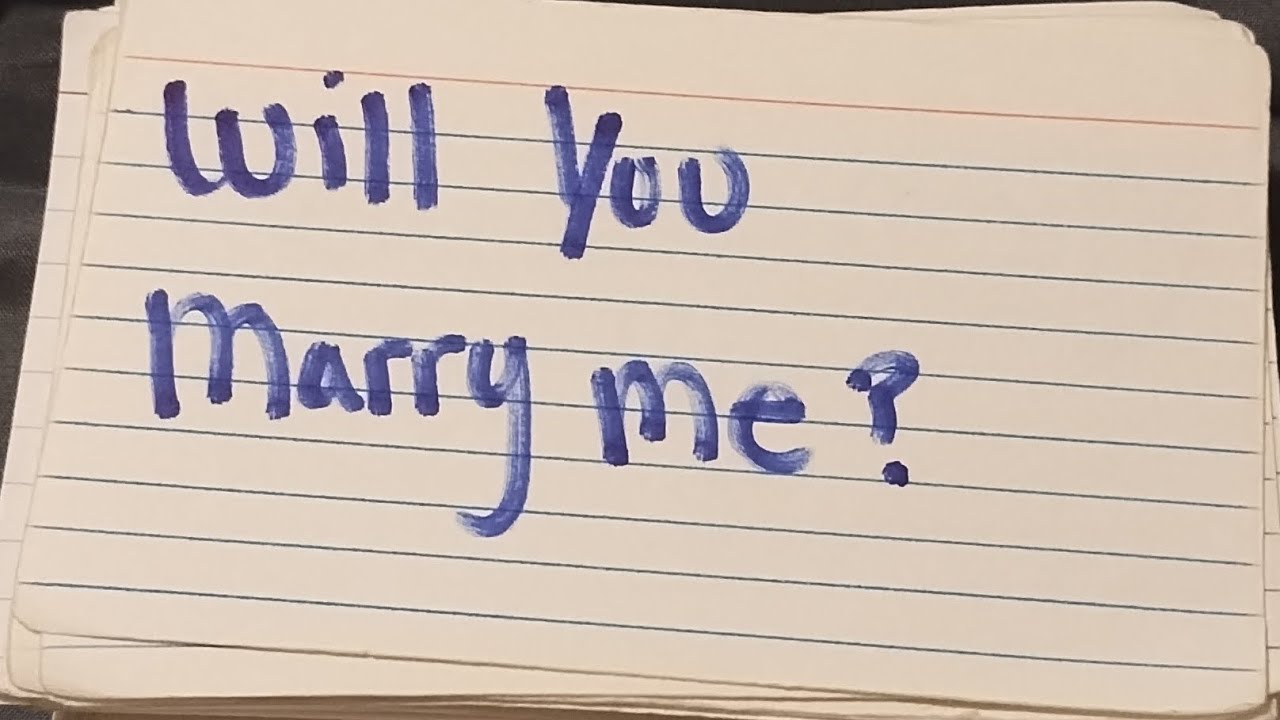 Will You
Marry me?